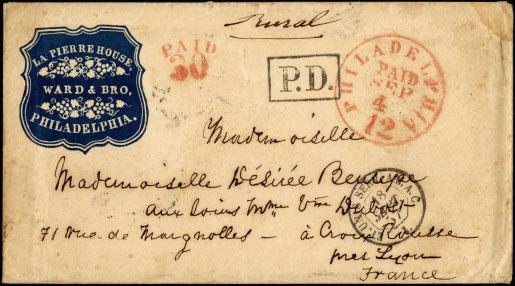 Rural
LA PIERRE HOUSE,
WARD & BRO,
PHILADELPHIA.
PAID
30
P.D.
PHILADELPHIA
PAID
SEP
4
12
Mademoiselle
Mademoiselle Désirée
aux soins Mme Vve
71 Rue de Margnolles — à Croix Rousse
près Lyon
France